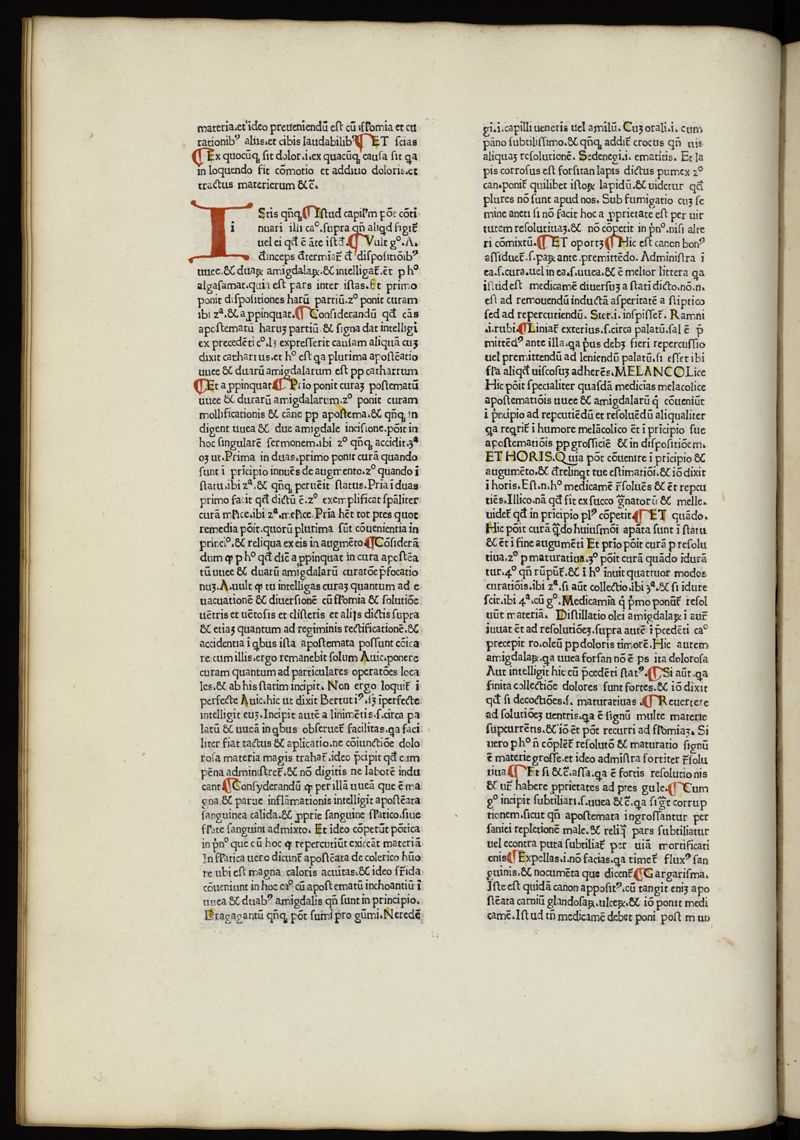 materia.et ideo preueniendũ eſt cũ ꝼſomia et cũ
rationibꝰ aliis.et cibis laudabilibꝰ ¶ ET ſcias
¶ Ex quocũq̃ ſit dolor.i.ex quacũq̃ cauſa ſit qa
in loquendo fit cõmotio et additio doloris.et
tractus materierum &c̃.
IStis qñq̃ ¶ Iſtud capitľm põt cõti
nuari illi caᵒ.ſupra qñ aliqd figit̃
uel ei qd̃ ẽ ãte iſtđ. ¶ Vult gᵒ.A.
đinceps đtermiar̃ đ diſpoſitiõibꝰ
uuee.& duaꝝ amigdalaꝝ.& intelligat̃.ẽt p hᵒ
algaſamat.quia eſt pars inter iſtas.Et primo
ponit diſpoſitiones harũ partiũ.2ᵒ ponit curam
ibi 2ª.& appinquat. ¶ Conſiderandũ qd̃ cãs
apoſtematũ haruʒ partiũ & ſigna dat intelligi
ex precedẽti cᵒ.lʒ expreſſerit cauſam aliquã cuʒ
dixit catharrus.et hᵒ eſt qa plurima apoſtẽatio
uuee & duarũ amigdalarum eſt pp catharrum
¶ Et appinquat ¶ Prio ponit curaʒ poſtematũ
uuee & durarũ amigdalarum.2ᵒ ponit curam
mollificationis & cãne pp apoſtema.& qñq̃ in
digent uuea & due amigdale inciſione.põit in
hoc ſingularẽ ſermonem.ibi 2ᵒ qñq̃ accidit.3ª
oʒ ut.Prima in duas.primo ponit curã quando
ſunt ĩ prĩcipio innuẽs de augmento.2ᵒ quando ĩ
ſtatu.ibi 2ª.& qñq̃ peruẽit ſtatus.Pria ĩ duas
primo facit qd̃ dictũ ẽ.2ᵒ exemplificat ſpãliter
curã mr̃ice.ibi 2ª.mer̃ice.Pria hẽt tot ptes quot
remedia põit.quorũ plurima ſũt cõuenientia in
princiᵒ.& reliqua ex eis in augmẽto ¶ Cõſiderã
dum ꝙ p hᵒ qd̃ dic̃ appinquat in cura apoſtẽa
tũ uuee & duarũ amigdalarũ curatõe pfocatio
nuʒ.A.uult ꝙ tu intelligas curaʒ quantum ad e
uacuationẽ & diuerſionẽ cũ ꝼſomia & ſolutiõe
uẽtris et uẽtoſis et cliſteris et aliis dictis ſupra
& etiaʒ quantum ad regiminis rectificationẽ.&
accidentia ĩ qbus iſta apoſtemata poſſunt cõica
re cum illis.ergo remanebit ſolum Auic.ponere
curam quantum ad particulares operatões loca
les.& ab his ſtatim incipit. Non ergo loquit̃ ĩ
perfecte Auic.hic ut dixit Bertutiꝰ.lʒ ĩperfecte
intelligit euʒ.Incipit autẽ a linimẽtis.ſ.circa pa
latũ & uueã in qbus obſeruet̃ facilitas.qa faci
liter fiat tactus & aplicatio.ne cõiunctiõe dolo
roſa materia magis trahat̃.ideo p̃cipit qd̃ cum
pẽna adminiſtret̃.& nõ digitis ne laborẽ indu
cant ¶ Conſyderandũ ꝙ per illã uueã que ẽ ma
gna.& parue inflãmationis intelligit apoſtẽata
ſanguinea calida.& ꝓprie ſanguine ſr̃atico.ſiue
ſr̃ate ſanguini admixto. Et ideo cõpetũt põtica
in p̃nᵒ que cũ hoc ꝙ repercutiũt exiccãt materiã
In ſr̃atica uero dicunt̃ apoſtẽata de colerico hũo
re ubi eſt magna caloris acuitas.& ideo fr̃ida
cõueniunt in hoc caᵒ cũ apoſtematũ inchoantiũ ĩ
uuea & duabꝰ amigdalis qñ ſunt in principio.
Dragagantũ qñq̃ põt ſumi pro gũmi.Neredẽ
gi.i.capilli ueneris uel amilũ. Cuʒ orali.i.cum
pãno ſubtiliſſimo.& qñq̃ addit̃ crocus qñ uis
aliquaʒ reſolutionẽ. Sedenegi.i.ematitis. Et la
pis corroſus eſt forſitan lapis dictus pumex 2ᵒ
can.ponit̃ quilibet iſtoꝝ lapidũ.& uidetur qd̃
plures nõ ſunt apud nos. Sub fumigatio cuʒ ſe
mine aneti ſi nõ facit hoc a ꝓprietate eſt per uir
tutem reſolutiuaʒ.& nõ cõpetit in p̃nᵒ.niſi alte
ri cõmixtũ. ¶ ET oportʒ ¶ Hic eſt canon bonꝰ
aſſiduet̃.ſ.paꝝ ante.premittẽdo. Adminiſtra ĩ
ea.ſ.cura.uel in ea.ſ.uuea.& ẽ melior littera qa
iſtud eſt medicamẽ diuerſuʒ a ſtati dicto.nõ.n.
eſt ad remouendũ inductã aſperitatẽ a ſtiptico
ſed ad repercutiendũ. Stet.i.inſpiſſet̃. Ramni
.i.rubi. ¶ Liniat̃ exterius.ſ.circa palatũ.ſal ẽ p̃
mittẽdꝰ ante illa.qa p̃us debʒ fieri repercuſſio
uel premittendũ ad leniendũ palatũ.ſi eſſet ibi
ſr̃a aliqd̃ uiſcoſuʒ adherẽs.MELANCOLice
Hic põit ſpecialiter quaſdã medicias melacolice
apoſtematiõis uuee & amigdalarũ q̃ cõueniũt
ĩ p̃ncipio ad repcutiẽdũ et reſoluẽdũ aliqualiter
qa reqrit̃ ĩ humore melãcolico ẽt ĩ prĩcipio ſue
apoſtematiõis pp groſſiciẽ & in diſpoſitiõem.
ET HORIS. Quia põt cõuenire ĩ pricipio &
augumẽto.& đrelinqt tue eſtimatiõi.& iõ dixit
ĩ horis.Eſt.n.hᵒ medicamẽ r̃ſoluẽs & ẽt repcu
tiẽs.Illico.nã qd̃ fit ex ſucco g̃natorũ & melle.
uidet̃ qd̃ in pricipio plꝰ cõpetit ¶ ET quãdo.
Hic põit curã q̃do huiuſmõi apãta ſunt ĩ ſtatu
& ẽt ĩ fine augumẽti Et prĩo põit curã p reſolu
tiua.2ᵒ p maturatiua.3ᵒ põit curã quãdo idurã
tur.4ᵒ qñ rũpũt̃.& ĩ hᵒ inuit quattuor modos
curatiõis.ibi 2ª.ſi aũt collectio.ibi 3ª.& ſi idure
ſcit.ibi 4ª.cũ gᵒ.Medicamĩa q̃ p̃mo ponũt̃ reſol
uũt materiã. Diſtillatio olei amigdalaꝝ ĩ aur̃
iuuat ẽt ad reſolutiõeʒ.ſupra autẽ ĩ p̃cedẽti caᵒ
precepit ro.oleũ pp doloris timorẽ. Hic autem
amigdalaꝝ.qa uuea forſan nõ ẽ ps ita doloroſa
Aut intelligit hic cũ p̃cedẽti ſtatꝰ. ¶ Si aũt.qa
finita collectiõe dolores ſunt fortes.& iõ dixit
qd̃ ſi decoctiões.ſ. maturatiuas. ¶ Reuertere
ad ſolutiõeʒ uentris.qa ẽ ſignũ multe materie
ſupcurrẽns.& iõ ẽt põt recurri ad ꝼſomiaʒ. Si
uero pᵒ ñ cõplet̃ reſolutõ & maturatio ſignũ
ẽ materie groſſe.et ideo admiſtra fortiter r̃ſolu
tiua ¶ Et ſi &c̃.aſſa.qa ẽ fortis reſolutionis
& ut̃ habere ꝓprietates ad pres gule. ¶ Cum
gᵒ incipit ſubtiliari.ſ.uuea &c̃.qa ſig̃t corrup
tionem.ſicut qñ apoſtemata ingroſſantur per
ſaniei repletionẽ male.& reliq̃ pars ſubtiliatur
uel econtra puta ſubtiliat̃ per uiã mortificati
onis ¶ Expellas.i.nõ facias.qa timet̃ fluxꝰ ſan
guinis.& nocumẽta que dicent̃ ¶ Gargariſma.
Iſte eſt quidã canon appoſitꝰ.cũ tangit eniʒ apo
ſtẽata carniũ glandoſaꝝ.ulceꝝ.& iõ ponit medi
camẽ.Iſtud tñ medicamẽ debet poni poſt m un